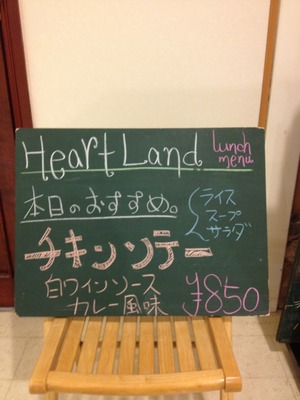 Heart Land
lunch
menu
本日のおすすめ。
ライス
スープ
サラダ
チキンソテー
白ワインソース
カレー風味
¥850